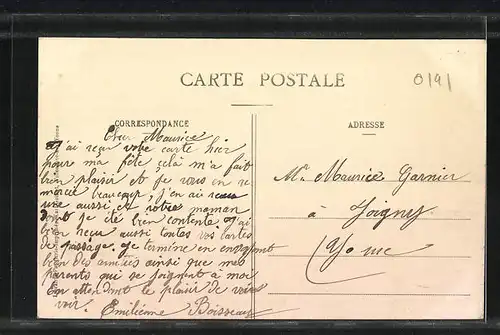 CARTE POSTALE
0191
CORRESPONDANCE
ADRESSE
Cher Maurice
j'ai reçu votre carte hier
pour ma fête cela m'a fait
bien plaisir et je vous en re
mercie beaucoup, j'en ai reçu
une aussi de votre maman
dont je été bien contente j'ai
bien reçu aussi toutes vos cartes
de passage, je termine en envoyant
bien des amitiés ainsi que mes
parents qui se joignent à moi
En attendant le plaisir de vous
voir. Emilienne Boisseau
Mr Maurice Garnier
à Joigny
Yonne